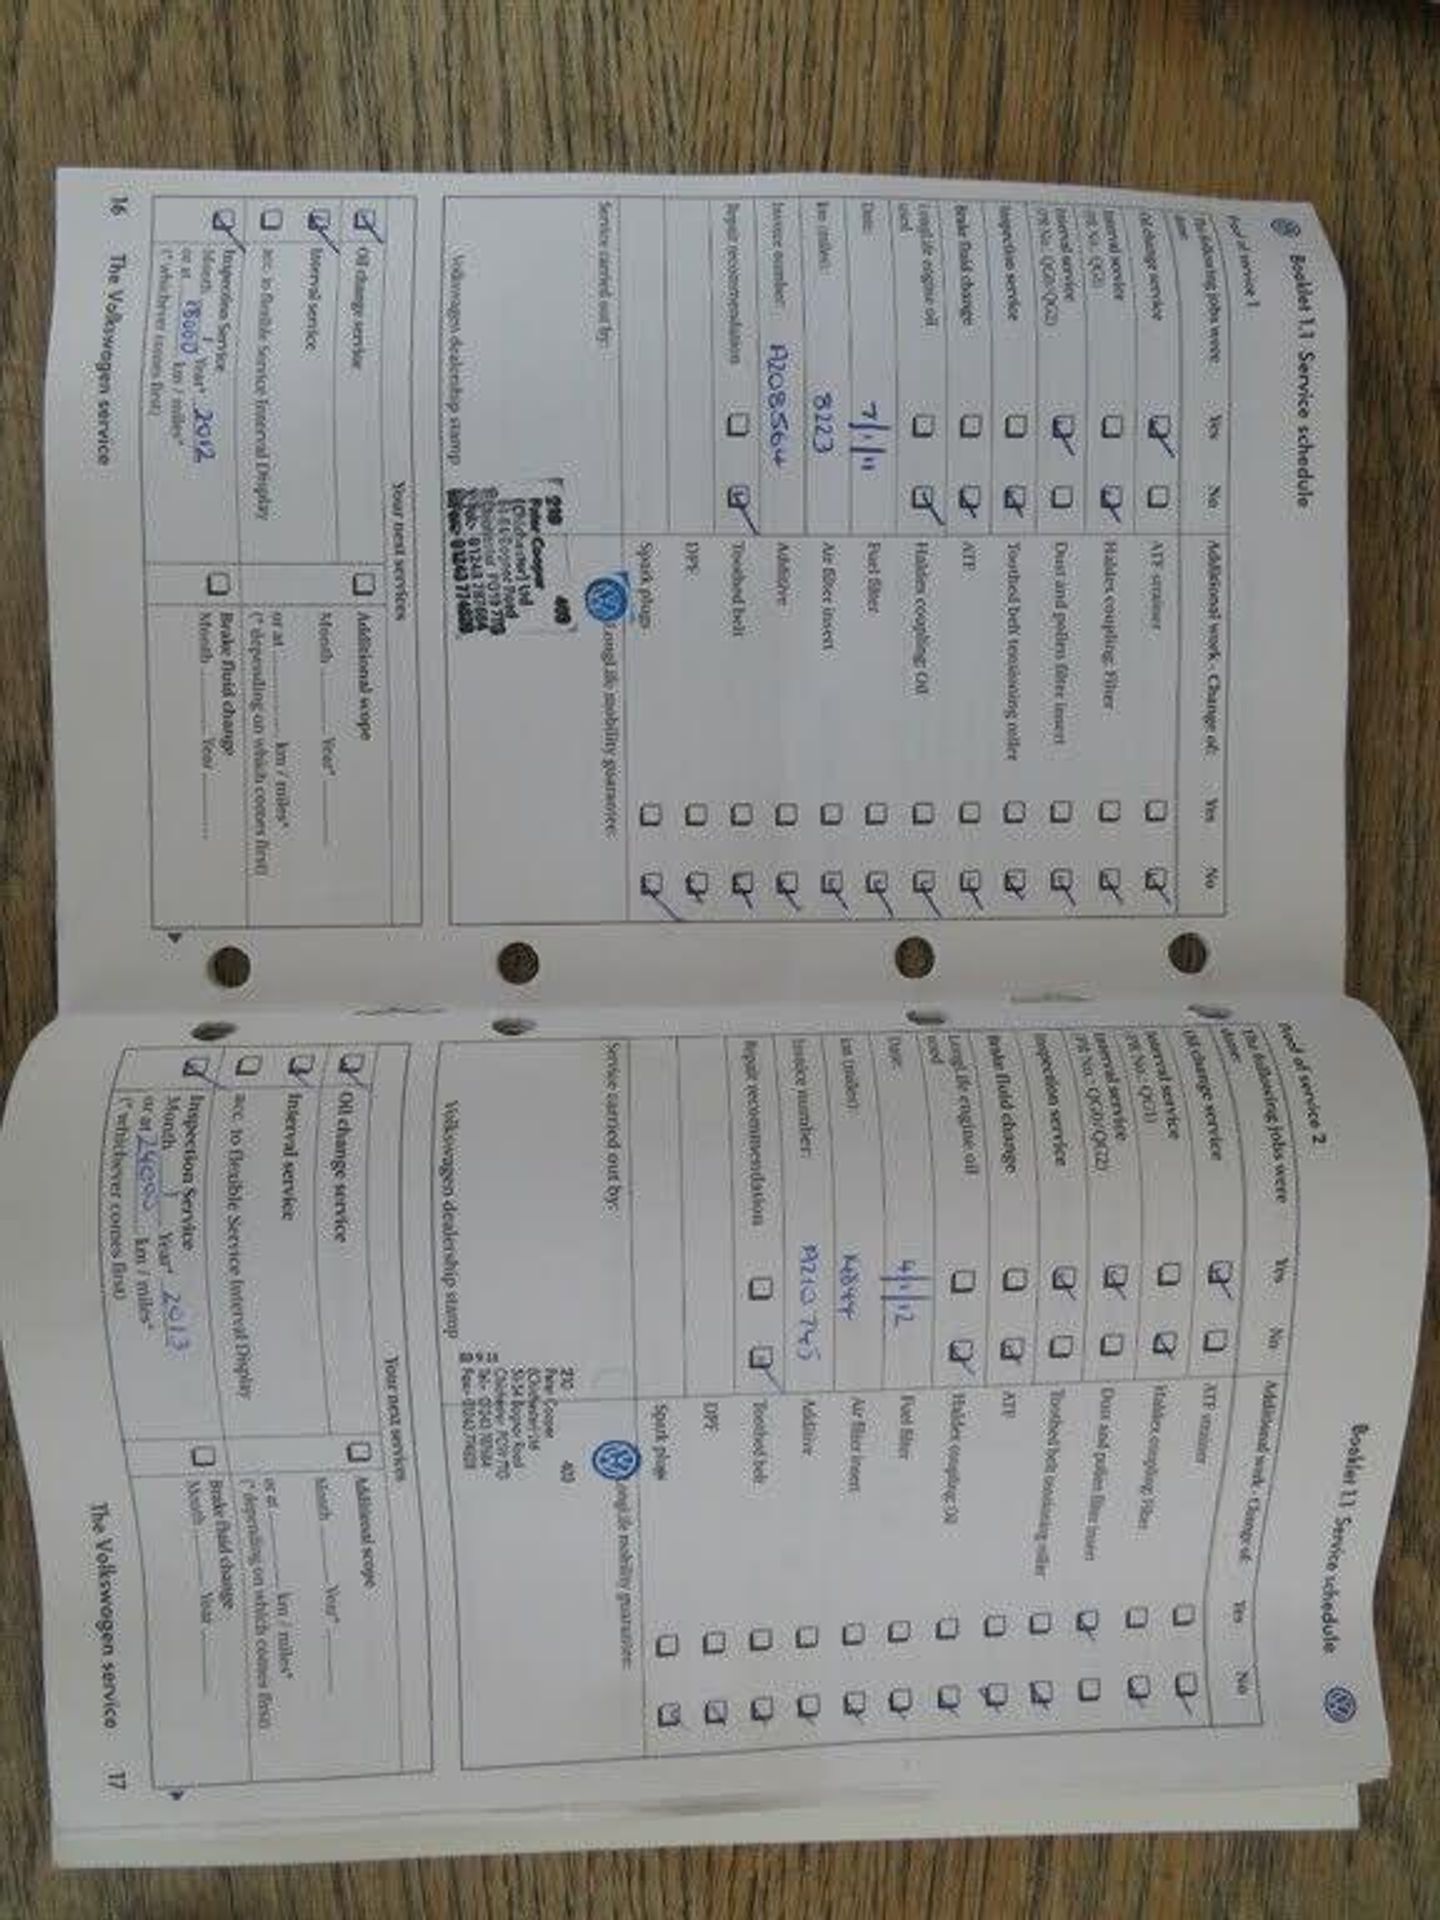 Booklet 1.1 Service schedule
Proof of service 1
The following jobs were done: Yes No Additional work - Change of: Yes No
Oil change service ATF strainer
Interval service (PR No. QG1) Haldex coupling: Filter
Interval service (PR No. QG0/QG2) Dust and pollen filter insert
Inspection service Toothed belt tensioning roller
Brake fluid change ATF
LongLife engine oil used Haldex coupling: Oil
Date: 7/1/11 Fuel filter
km (miles): 8223 Air filter insert
Invoice number: A208564 Additive
Repair recommendation Toothed belt
DPF
Spark plugs
Service carried out by: LongLife mobility guarantee:
210 409
Peter Cooper
(Chichester) Ltd
Volkswagen dealership stamp
Your next services
Oil change service Additional scope
Interval service Month Year*
acc. to flexible Service Interval Display or at km / miles*
(* depending on which comes first)
Inspection Service Brake fluid change
Month 1 Year* 2012 Month Year
or at 18000 km / miles*
(* whichever comes first)
16 The Volkswagen service
Booklet 1.1 Service schedule
Proof of service 2
The following jobs were done: Yes No Additional work - Change of: Yes No
Oil change service ATF strainer
Interval service (PR No. QG1) Haldex coupling: Filter
Interval service (PR No. QG0/QG2) Dust and pollen filter insert
Inspection service Toothed belt tensioning roller
Brake fluid change ATF
LongLife engine oil used Haldex coupling: Oil
Date: 4/1/12 Fuel filter
km (miles): Air filter insert
Invoice number: A210745 Additive
Repair recommendation Toothed belt
DPF
Spark plugs
Service carried out by: LongLife mobility guarantee:
210 403
Peter Cooper
(Chichester) Ltd
Volkswagen dealership stamp
Your next services
Oil change service Additional scope
Interval service Month Year*
acc. to flexible Service Interval Display or at km / miles*
(* depending on which comes first)
Inspection Service Brake fluid change
Month 1 Year* 2013 Month Year
or at 24000 km / miles*
(* whichever comes first)
The Volkswagen service 17